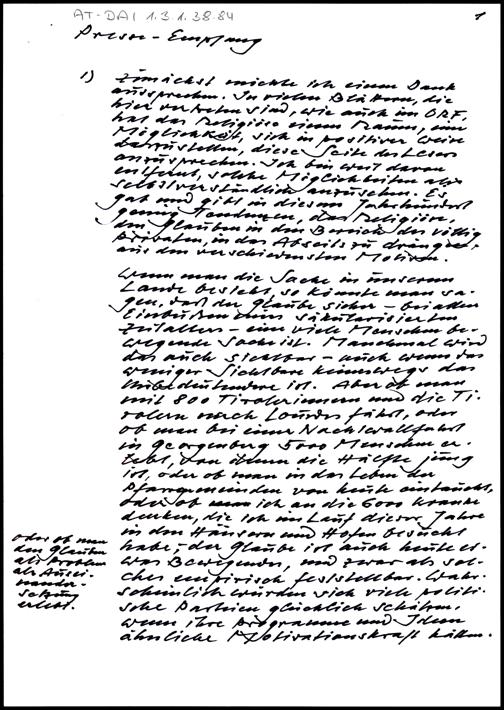 AT-DAI 1.3.1.38.84
1
Presse-Empfang
1) Zunächst möchte ich einen Dank
aussprechen. In vielen Blättern, die
hier vertreten sind, wie auch im ORF,
hat das Religiöse einen Raum, eine
Möglichkeit, sich in positiver Weise
darzustellen, diese Seite des Lesers
anzusprechen. Ich bin weit davon
entfernt, solche Möglichkeiten als
selbstverständlich anzusehen. Es
gab und gibt in diesem Jahrhundert
genug Tendenzen, das Religiöse,
den Glauben in den Bereich des völlig
Privaten, in das Abseits zu drängen,
aus den verschiedensten Motiven.
Wenn man die Sache in unserem
Lande besieht, so könnte man sa-
gen, daß der Glaube sicher - bei allen
Einbußen eines säkularisierten
Zeitalters - eine viele Menschen be-
wegende Sache ist. Manchmal wird
das auch sichtbar - auch wenn das
weniger Sichtbare keineswegs das
Unbedeutendere ist. Aber ob man
mit 800 Tirolerinnen und die Ti-
rolern nach Lourdes fährt, oder
ob man bei einer Nachtwallfahrt
in Georgenberg 5000 Menschen er-
lebt, von denen die Hälfte jung
ist, oder ob man in das Leben der
Pfarrgemeinden von heute eintaucht,
oder ob man ich an die 6000 Kranke
denken, die ich im Lauf dieser Jahre
in den Häusern und Höfen besucht
habe, der Glaube ist auch heute et-
was Bewegendes, und zwar als sol-
ches empirisch feststellbar. Wahr-
scheinlich würden sich viele politi-
sche Parteien glücklich schätzen,
wenn ihre Programme und Ideen
ähnliche Motivationskraft hätten.
oder ob man
den Glauben
als Problem
als Ausei-
nander-
setzung
erlebt.